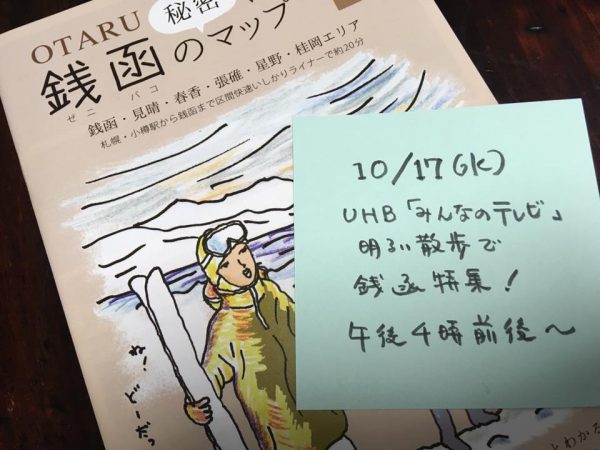 OTARU
秘密
銭函のマップ
ゼニ バコ
銭函・見晴・春香・張碓・星野・桂岡エリア
札幌・小樽駅から銭函まで区間快速いしかりライナーで約20分
ね!どーだっ
10/17(水)
UHB「みんなのテレビ」
明るい散歩で
銭函特集!
午後4時前後~
とわかる